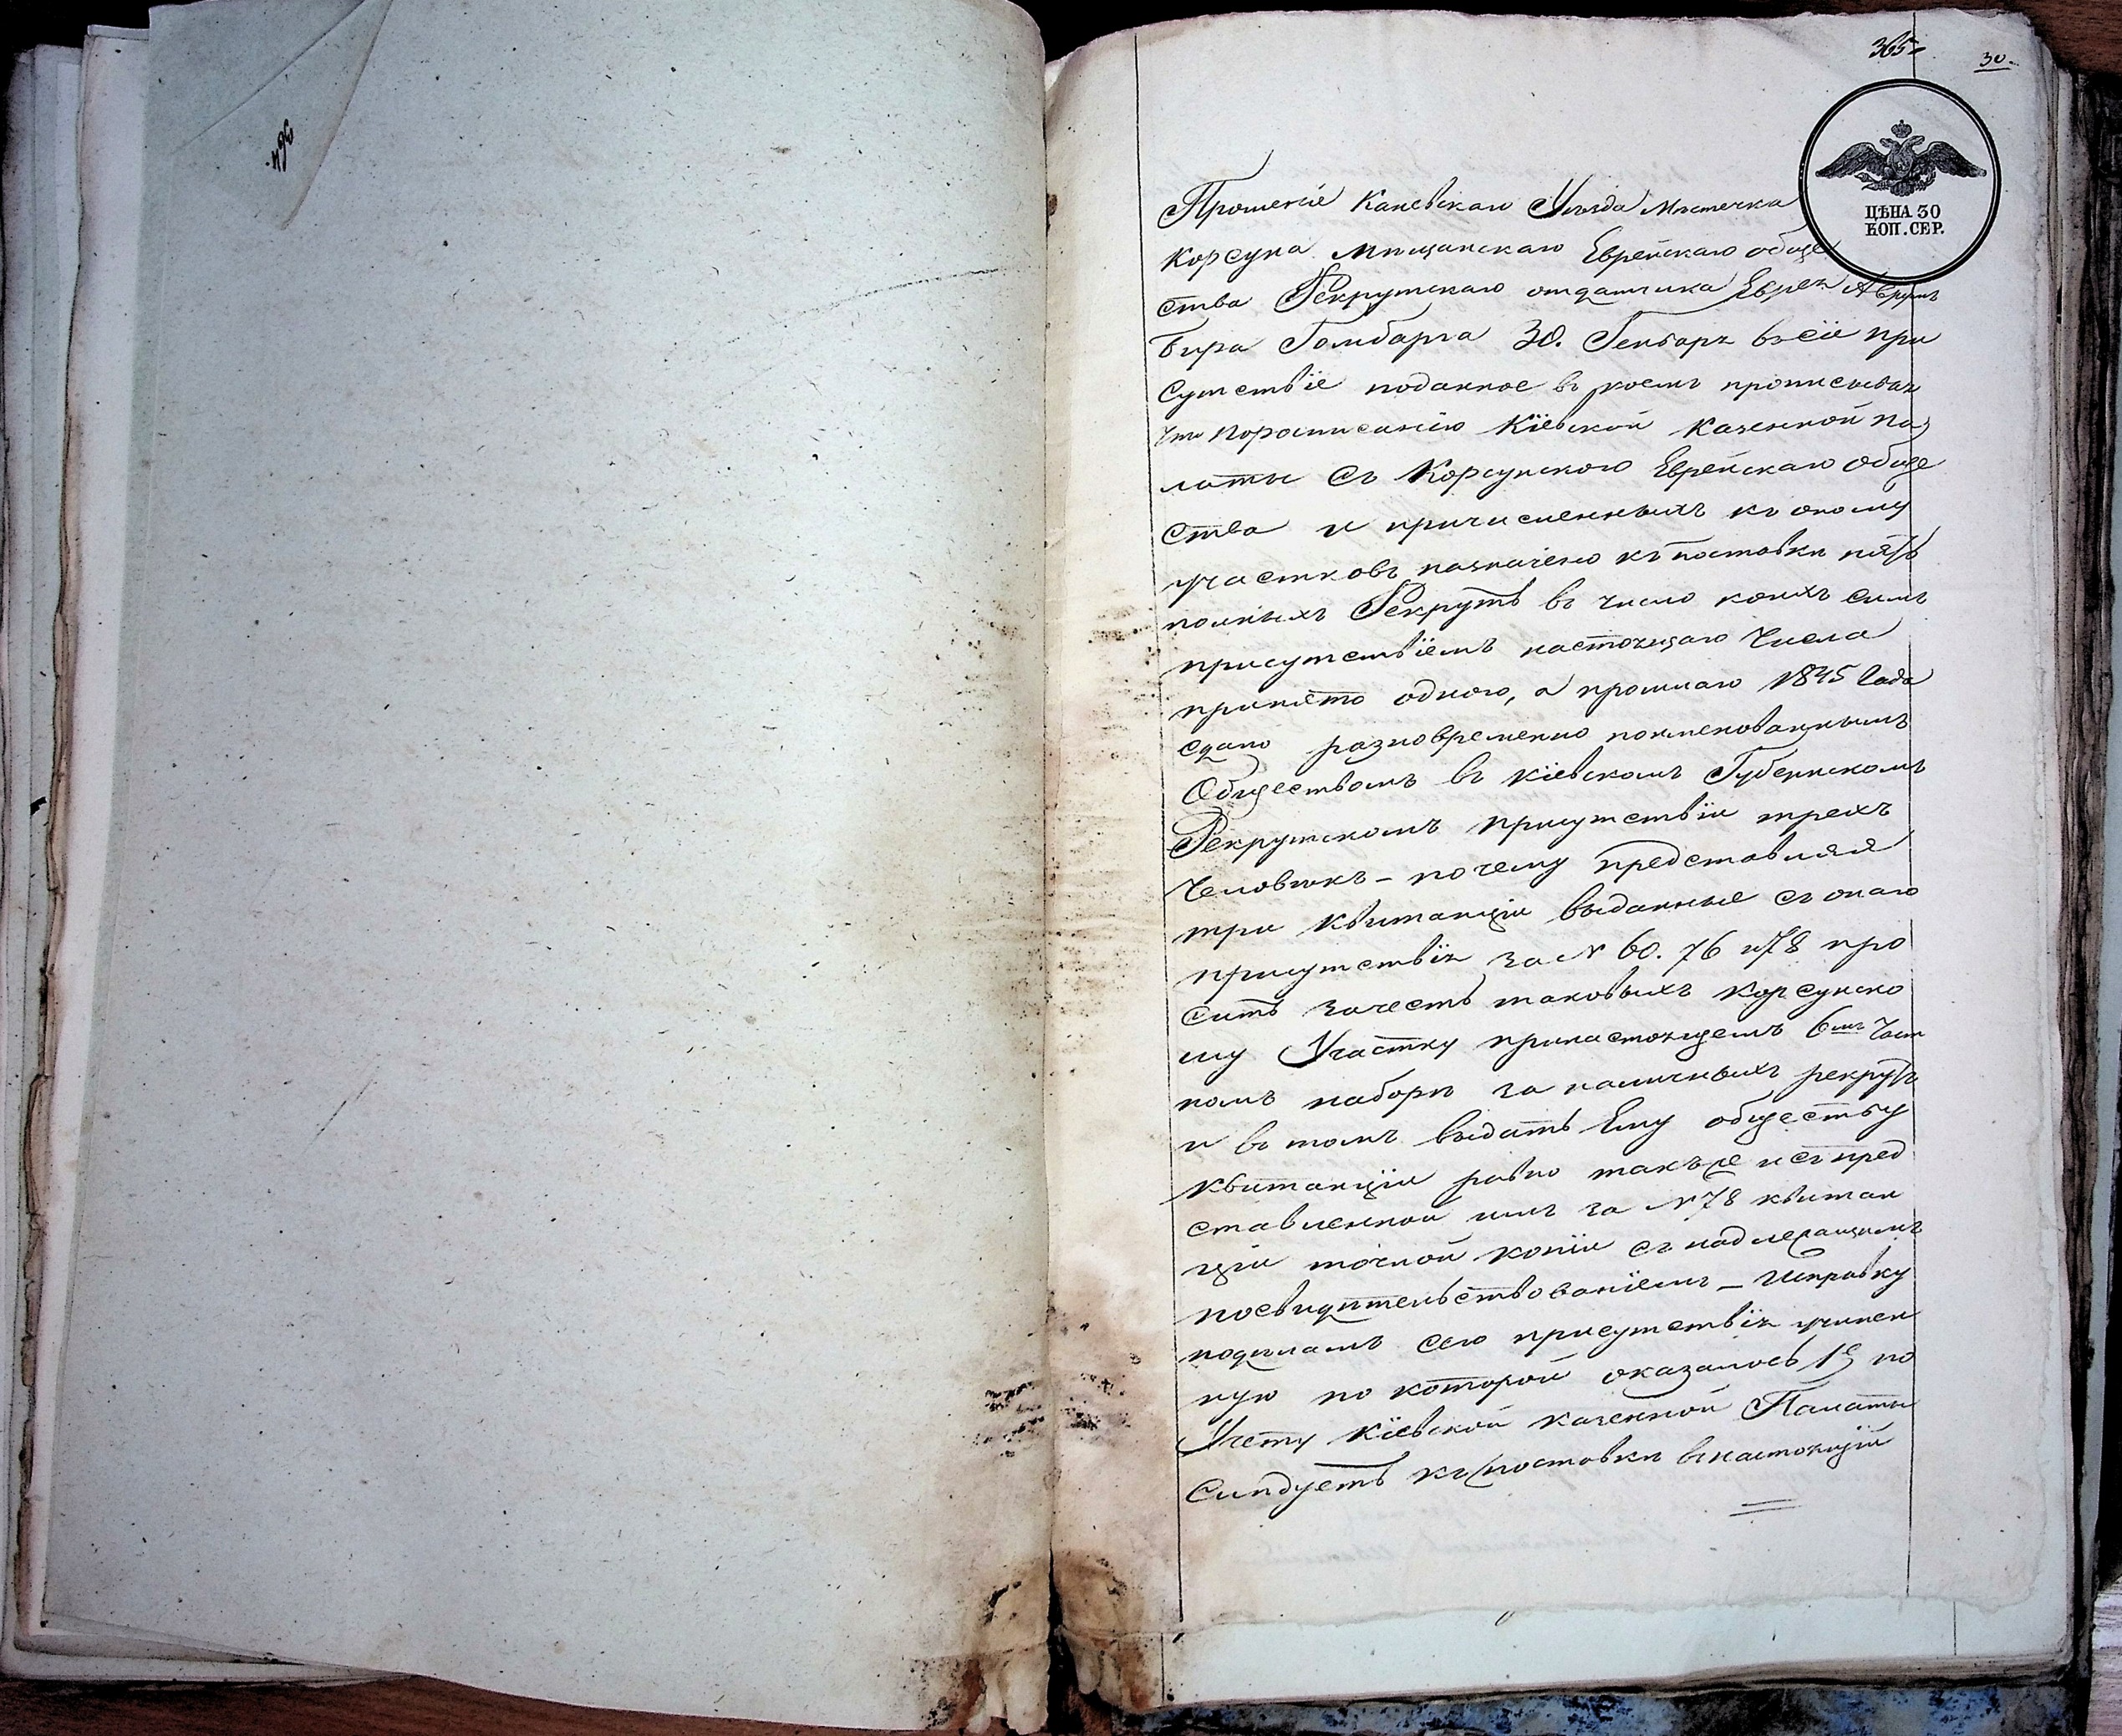 364.
365
30.
ЦѢНА 30
КОП. СЕР.
Прошеніе Каневскаго Уѣзда Мѣстечка
Корсуна Мѣщанскаго Еврейскаго обще
ства Рекрутскаго отдатчика Еврея
30. Генваря въ сіе при
сутствіе поданное въ коемъ прописывая
что поросписанію Кіевской Казенной па
латы съ Корсунского Еврейскаго обще
ства и причисленныхъ къ оному
участковъ назначено къ поставки пять
полныхъ Рекрутъ въ число коихъ симъ
присутствіемъ настоящаго Числа
принято одного, а прошлаго 1845 Года
сдано разновременно поименованнымъ
Обществомъ въ Кіевскомъ Губернскомъ
Рекрутскомъ присутствіи трехъ
Человѣкъ – почему представляя
три квитанціи выданные съ онаго
присутствія за N 60. 76 и 78 про
ситъ зачесть таковыхъ Корсунско
му Участку принастоящемъ 6мъ Част
номъ наборѣ за наличныхъ рекрутъ
и въ томъ выдать Ему обществу
квитанціи равно такъже и съ пред
ставленной имъ за N 78 квитан
ціи точной копіи съ надлежащимъ
посвидѣтельствованіемъ – Исправку
подѣламъ сего присутствія учинен
ную по которой оказалось 1е по
Учету Кіевской казенной Палаты
Слѣдуетъ къ поставкѣ въ настоящій